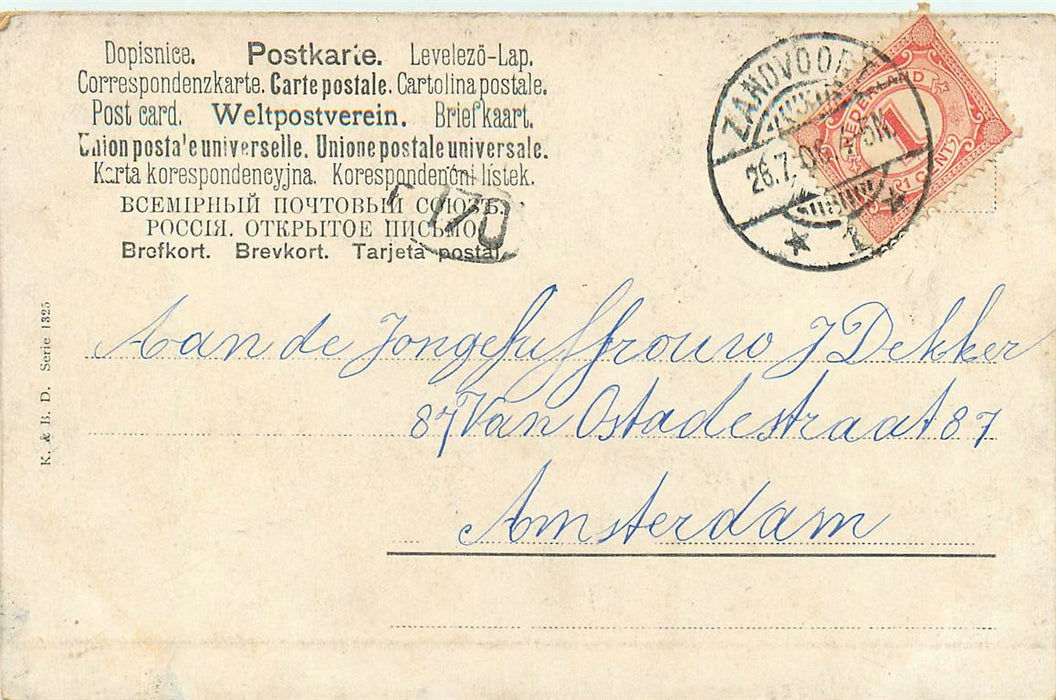 Dopisnice. Postkarte. Levelező-Lap.
Correspondenzkarte. Carte postale. Cartolina postale.
Post card. Weltpostverein. Briefkaart.
Union postale universelle. Unione postale universale.
Karta korespondencyjna. Korespondenční lístek.
ВСЕМІРНЫЙ ПОЧТОВЫЙ СОЮЗЪ.
РОССІЯ. ОТКРЫТОЕ ПИСЬМО.
Brefkort. Brevkort. Tarjeta postal.
170
ZANDVOORT
26.7.06
1
NEDERLAND
1
1 CENT
K. & B. D. Serie 1325
Aan de Jongejuffrouw J Dekker
87 Van Ostadestraat 87
Amsterdam